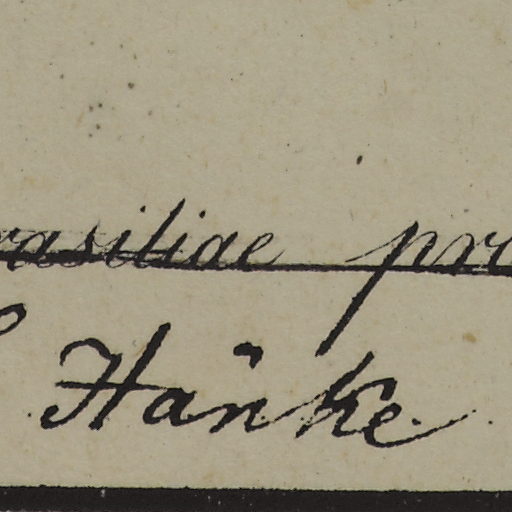 rasiliae pro
Hänke